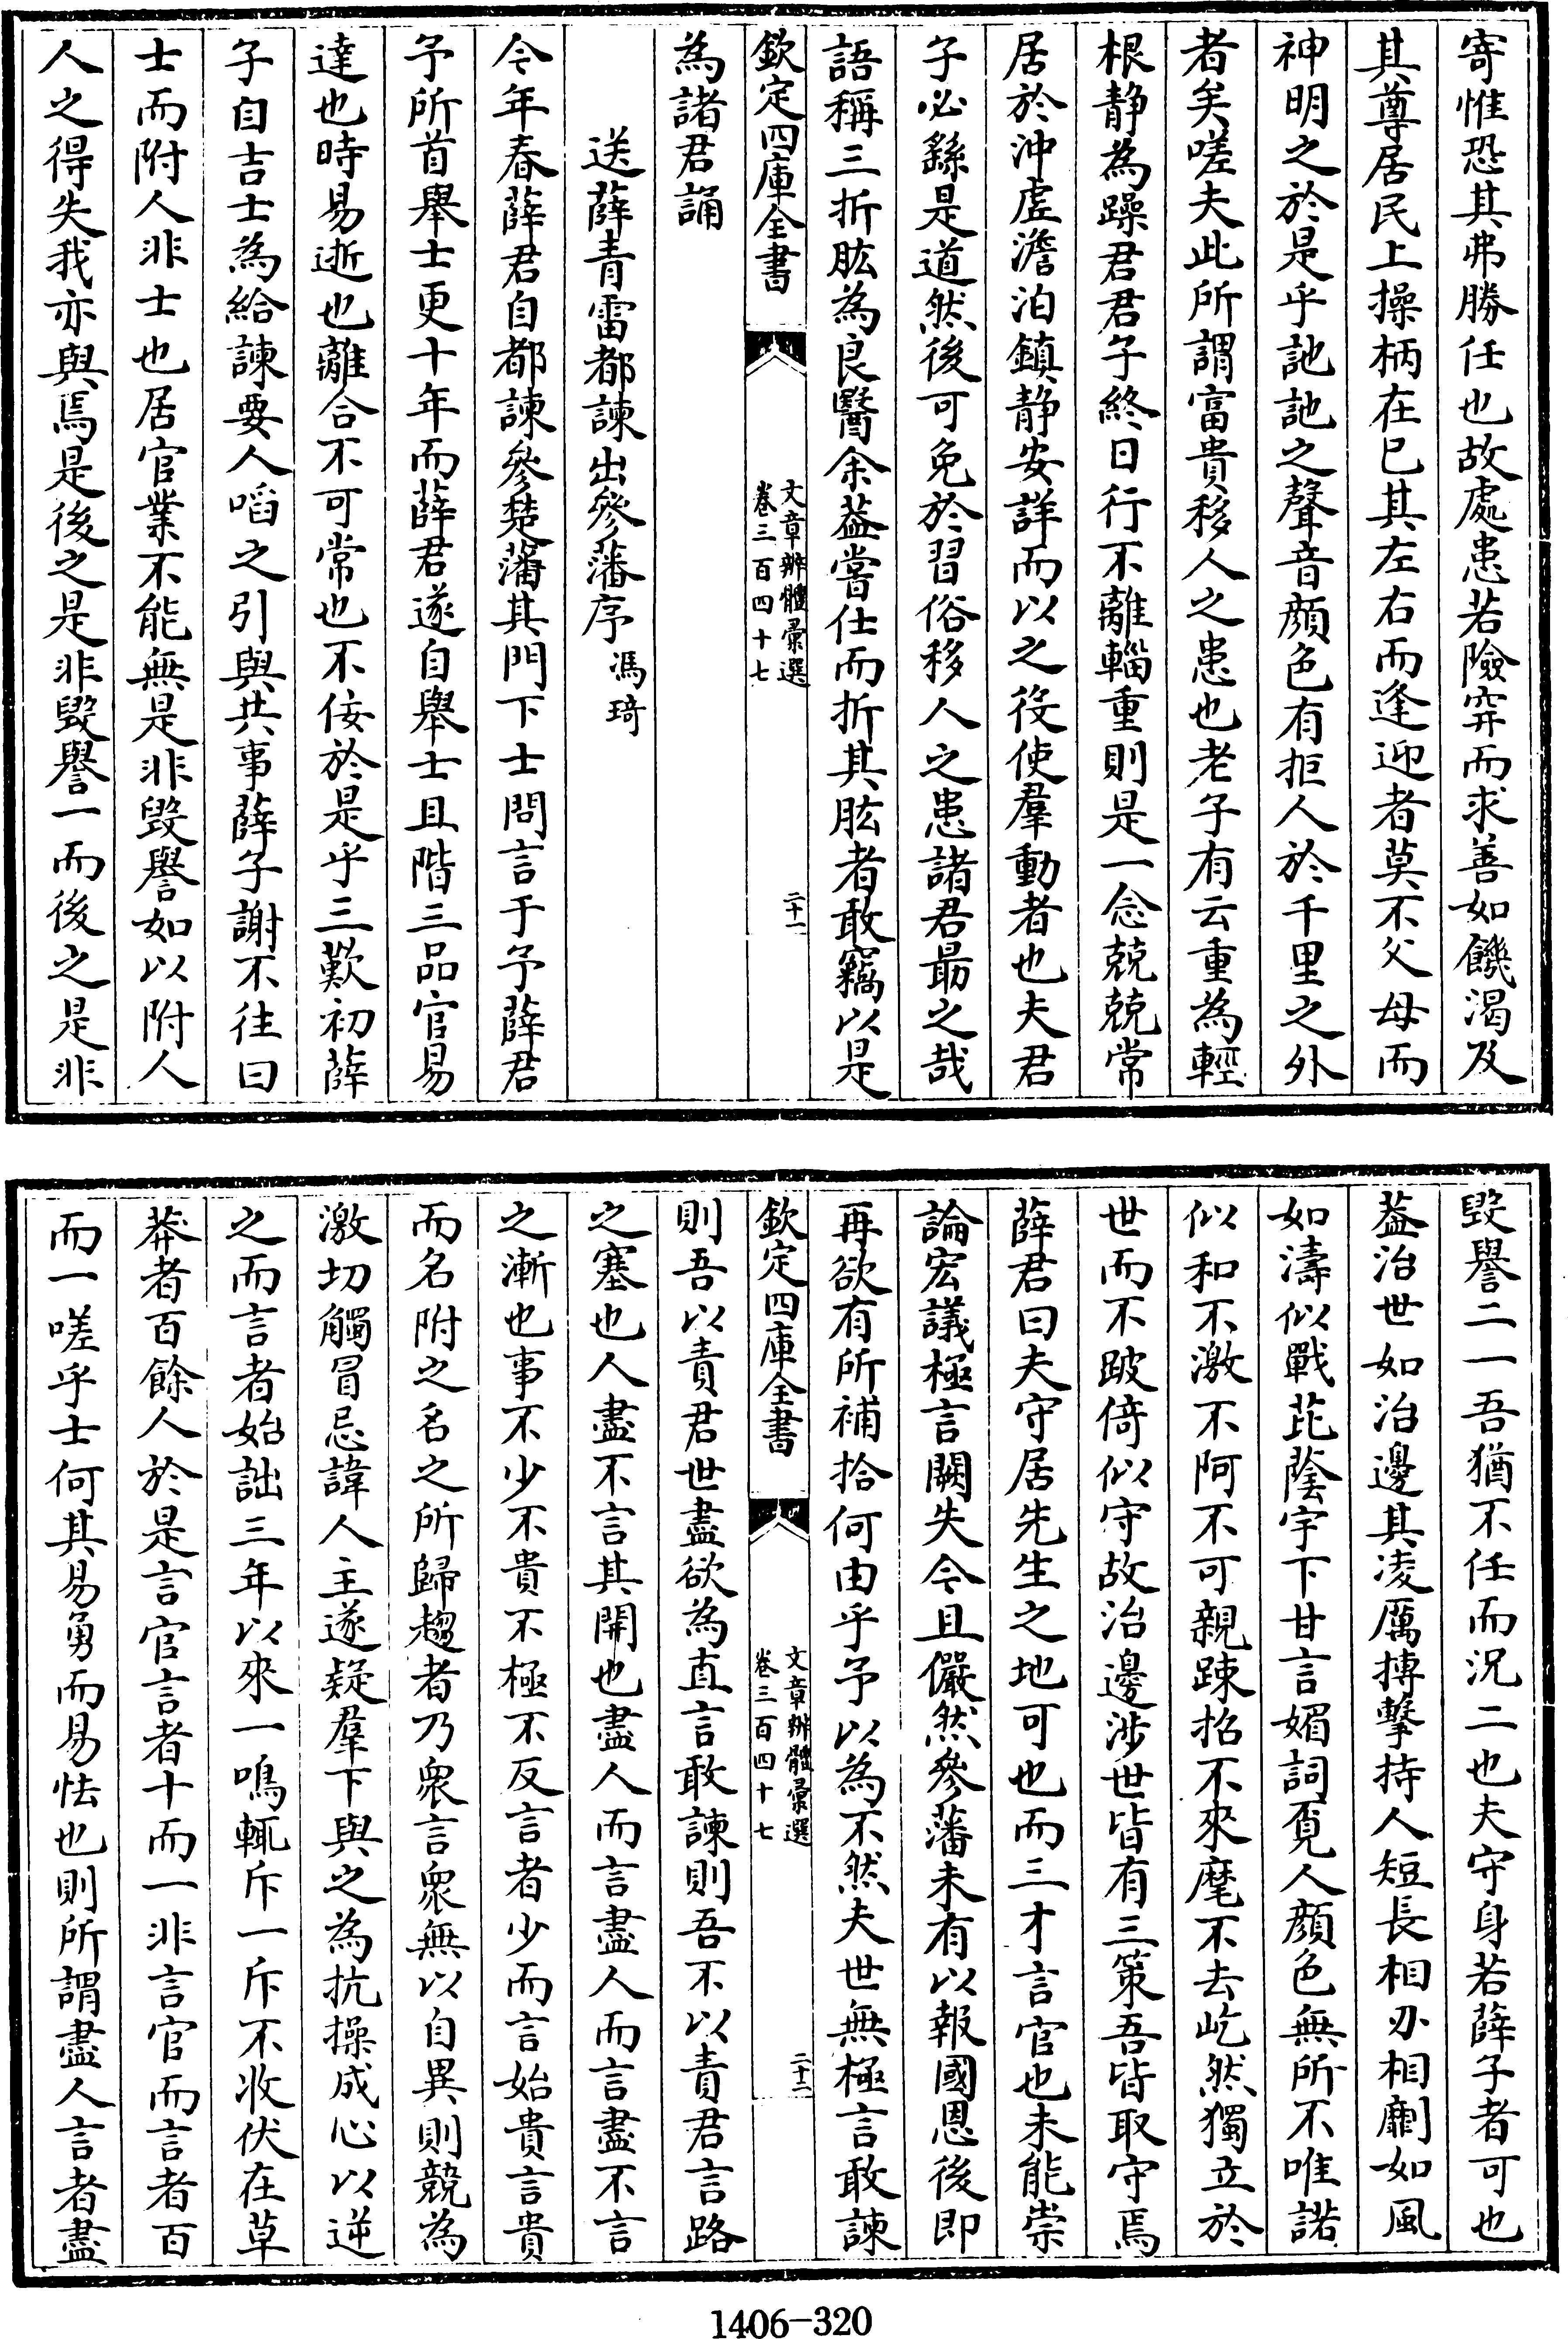 寄惟恐其弗勝任也故處患若險穽而求善如饑渴及
其尊居民上操柄在已其左右而逢迎者莫不父母而
神明之於是乎訑訑之聲音顔色有拒人於千里之外
者矣嗟夫此所謂富貴移人之患也老子有云重為輕
根静為躁君君子終日行不離輜重則是一念兢兢常
居於沖虛澹泊鎮静安詳而以之役使羣動者也夫君
子必繇是道然後可免於習俗移人之患諸君勗之哉
語稱三折肱為良醫余葢嘗仕而折其肱者敢竊以是
欽定四庫全書
文章辨體彙選
卷三百四十七
二十一
為諸君誦
送薛青雷都諫出參藩序 馮琦
今年春薛君自都諫參楚藩其門下士問言于予薛君
予所首舉士更十年而薛君遂自舉士且階三品官易
達也時易逝也離合不可常也不佞於是乎三歎初薛
子自吉士為給諫要人啗之引與共事薛子謝不往曰
士而附人非士也居官業不能無是非毀譽如以附人
人之得失我亦與焉是後之是非毀譽一而後之是非
毀譽二一吾猶不任而況二也夫守身若薛子者可也
葢治世如治邊其凌厲搏擊持人短長相刃相劘如風
如濤似戰芘蔭宇下甘言媚詞覔人顔色無所不唯諾
似和不激不阿不可親踈招不來麾不去屹然獨立於
世而不跛倚似守故治邊涉世皆有三策吾皆取守焉
薛君曰夫守居先生之地可也而三才言官也未能崇
論宏議極言闕失今且儼然參藩未有以報國恩後即
再欲有所補拾何由乎予以為不然夫世無極言敢諫
欽定四庫全書
文章辨體彙選
卷三百四十七
二十二
則吾以責君世盡欲為直言敢諫則吾不以責君言路
之塞也人盡不言其開也盡人而言盡人而言盡不言
之漸也事不少不貴不極不反言者少而言始貴言貴
而名附之名之所歸趨者乃衆言衆無以自異則競為
激切觸冒忌諱人主遂疑羣下與之為抗操成心以逆
之而言者始詘三年以來一鳴輒斥一斥不收伏在草
莽者百餘人於是言官言者十而一非言官而言者百
而一嗟乎士何其易勇而易怯也則所謂盡人言者盡
1406-320